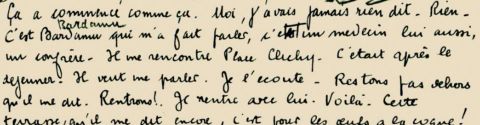 Ça a commencé comme ça. Moi, j'avais jamais rien dit. Rien.
Bardamu
C'est Bardamu qui m'a fait parler, c'était un medecin lui aussi,
un confrère. Il me rencontre Place Clichy. C'était après le
dejeuner. Il veut me parler. Je l'ecoute. Restons pas dehors
qu'il me dit. Rentrons!. Je rentre avec lui. Voilà. Cette
terrasse, qu'il me dit encore, c'est pour les œufs à la coque!